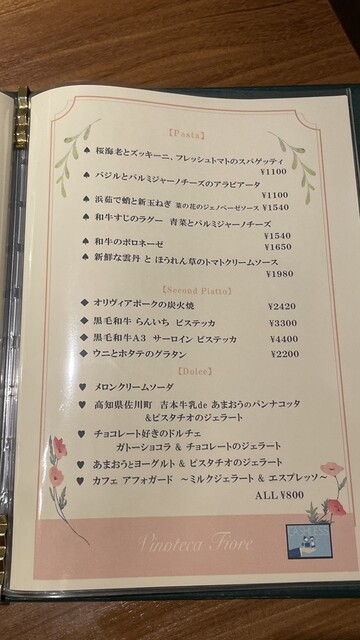 【Pasta】
♠ 桜海老とズッキーニ、フレッシュトマトのスパゲッティ
¥1100
♠ バジルとパルミジャーノチーズのアラビアータ
¥1100
♠ 浜茹で蛸と新玉ねぎ 菜の花のジェノベーゼソース ¥1540
♠ 和牛すじのラグー 青菜とパルミジャーノチーズ
¥1540
♠ 和牛のボロネーゼ ¥1650
♠ 新鮮な雲丹 と ほうれん草のトマトクリームソース
¥1980
【Second Piatto】
◆ オリヴィアポークの炭火焼 ¥2420
◆ 黒毛和牛 らんいち ビステッカ ¥3300
◆ 黒毛和牛A3 サーロイン ビステッカ ¥4400
◆ ウニとホタテのグラタン ¥2200
【Dolce】
♥ メロンクリームソーダ
♥ 高知県佐川町 吉本牛乳de あまおうのパンナコッタ
&ピスタチオのジェラート
♥ チョコレート好きのドルチェ
ガトーショコラ & チョコレートのジェラート
♥ あまおうとヨーグルト & ピスタチオのジェラート
♥ カフェ アフォガード ～ミルクジェラート & エスプレッソ～
ALL ¥800
Vinoteca Fiore